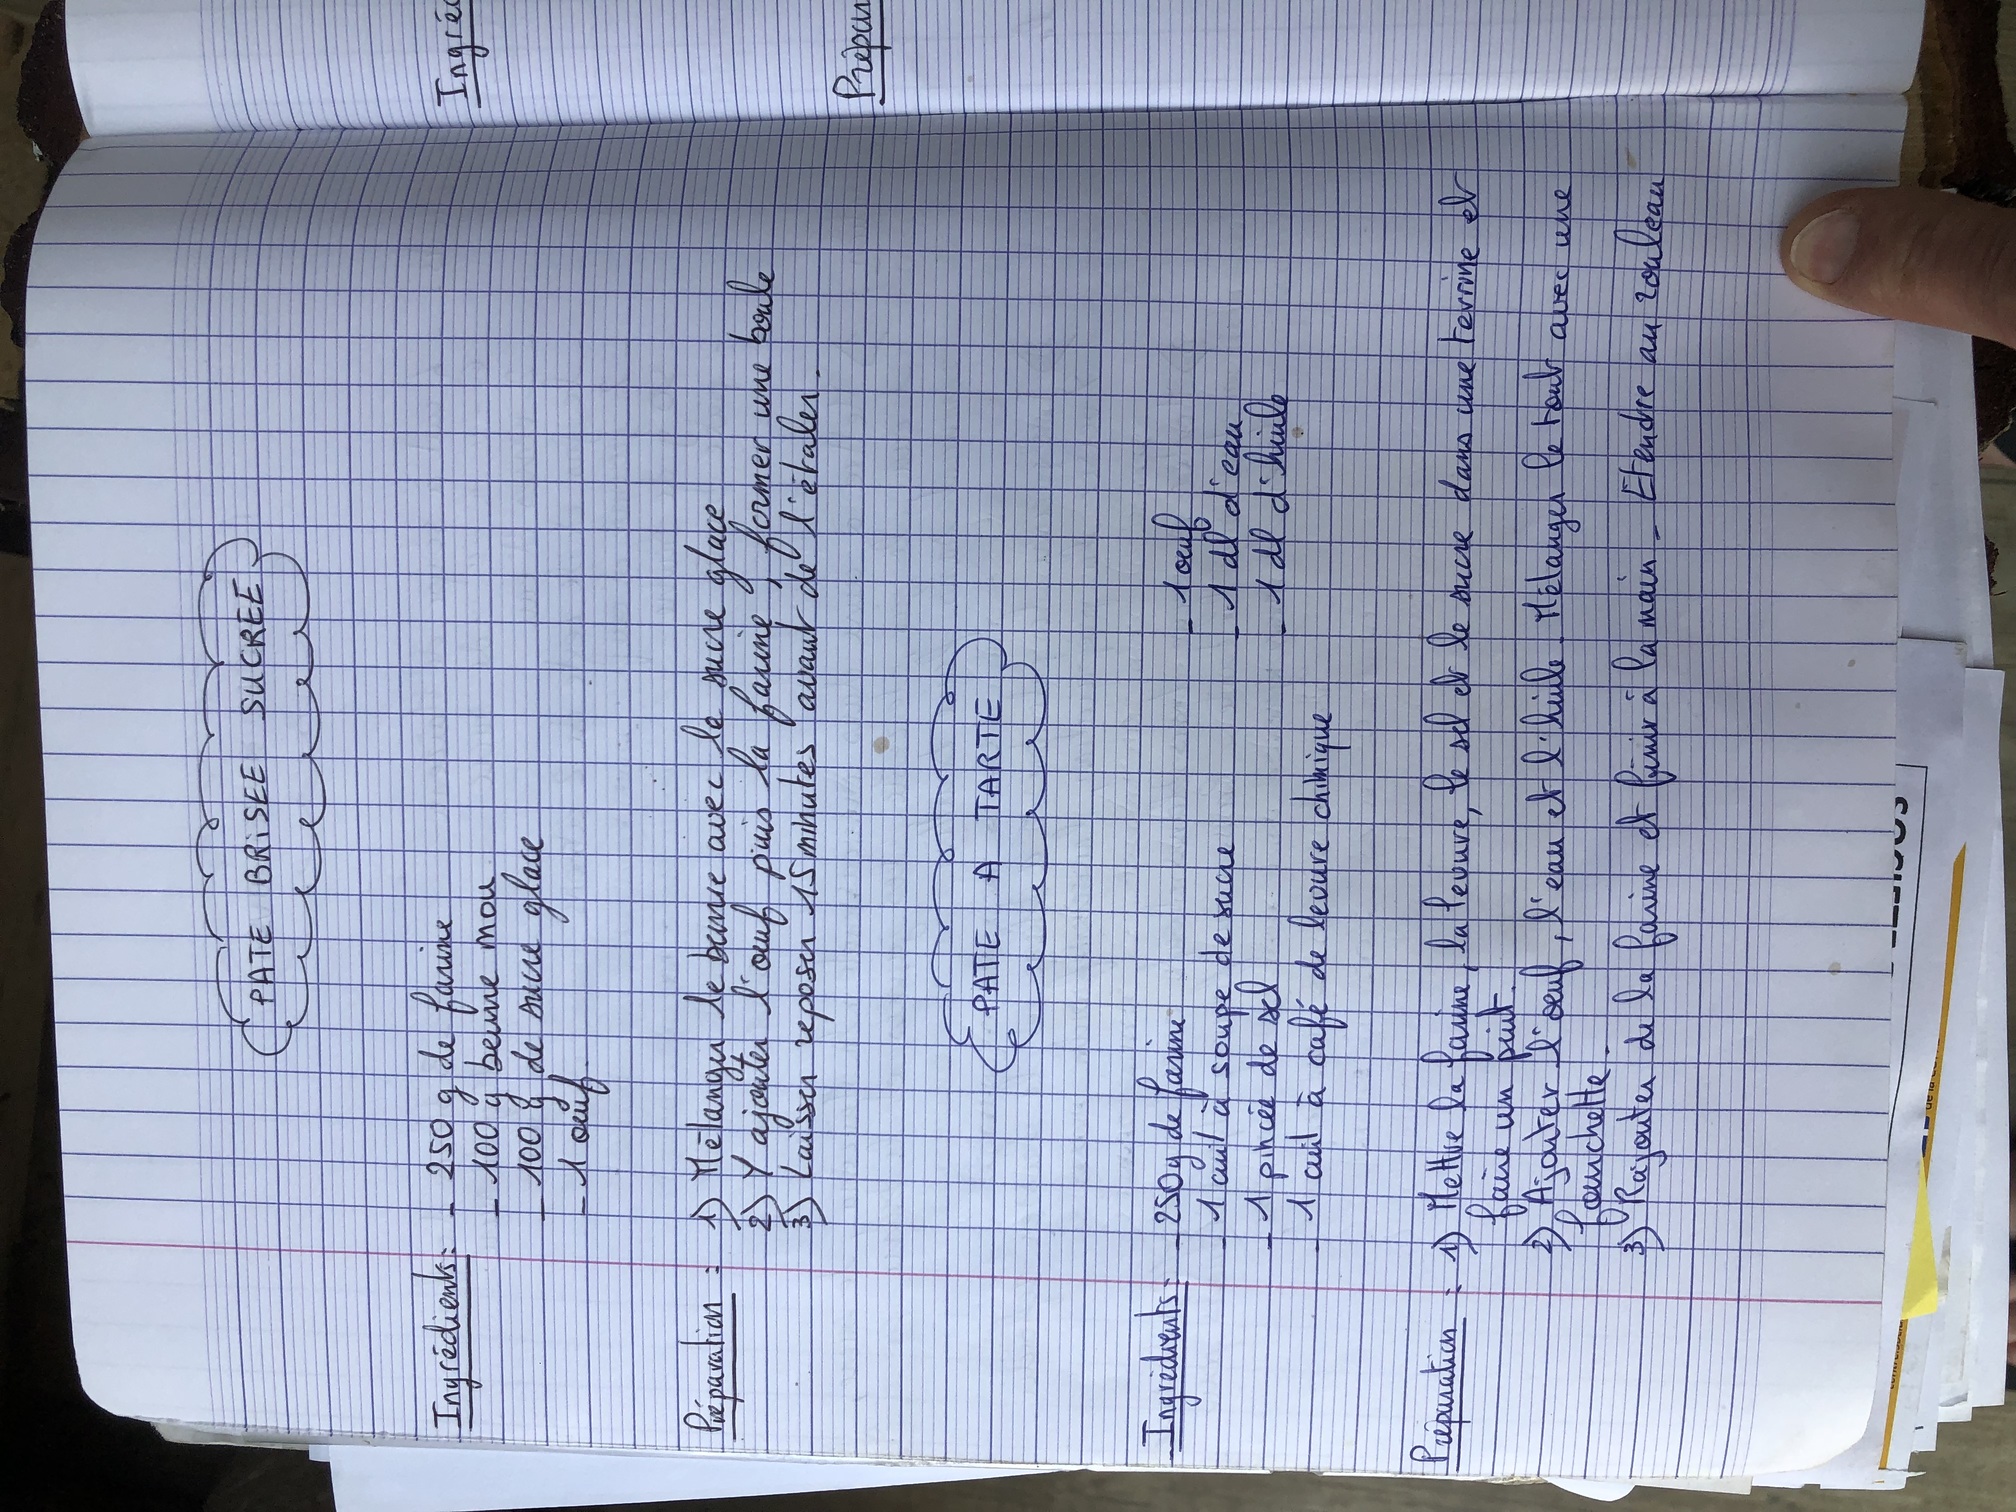 PATE BRISEE SUCREE
Ingrédients: - 250 g de farine
- 100 g beurre mou
- 100 g de sucre glace
- 1 oeuf
Préparation : 1) Mélanger le beurre avec le sucre glace
2) Y ajouter l'oeuf puis la farine, former une boule
3) Laisser reposer 15 minutes avant de l'étaler.
PATE A TARTE
Ingrédients: - 250g de farine - 1 oeuf
- 1 cuil à soupe de sucre - 1 dl d'eau
- 1 pincée de sel - 1 dl d'huile
- 1 cuil à café de levure chimique
Préparation : 1) Mettre la farine, la levure, le sel et le sucre dans une terrine et
faire un puit.
2) Ajouter l'oeuf, l'eau et l'huile. Mélanger le tout avec une
fourchette.
3) Rajouter de la farine et finir à la main - Etendre au rouleau
Ingréd
Prépar